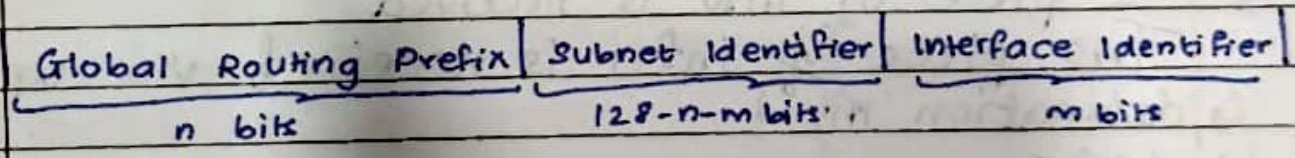 Global Routing Prefix Subnet Identifier Interface Identifier
n bits 128-n-m bits. m bits